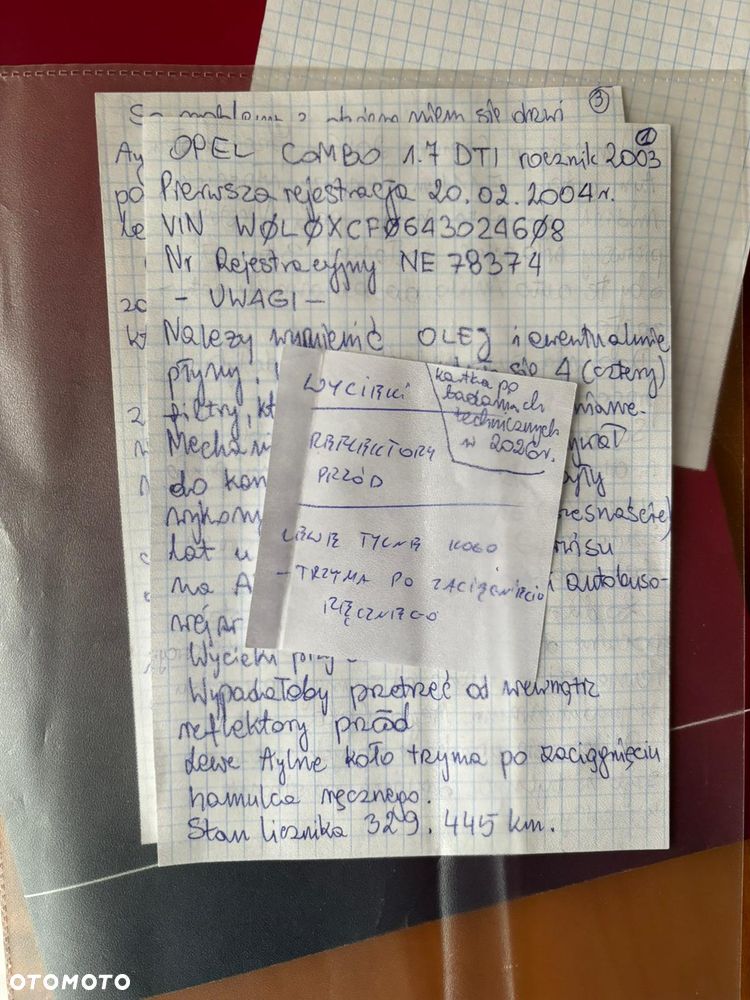 ③
① 
OPEL COMBO 1.7 DTI rocznik 2003
Pierwsza rejestracja 20.02.2004r.
VIN WØLØXCFØ6430246Ø8
Nr Rejestracyjny NE 78374
- UWAGI -
Należy wymienić OLEJ i ewentualnie
płyny, się 4 (cztery)
filtry, kt
Mechani
do kon
wykony
lat u isu
na A i autobuso-
wej
Wycieki
Wypadałoby przetrzeć od wewnątrz
reflektory przód
Lewe tylne koło trzyma po zaciągnięciu
hamulca ręcznego.
Stan licznika 329.445 km.
kartka po
badaniach
technicznych
w 2026r.
WYCIEKI
REFLEKTORY
PRZÓD
LEWE TYLNE KOŁO
- TRZYMA PO ZACIĄGNIĘCIU
RĘCZNEGO
OTOMOTO